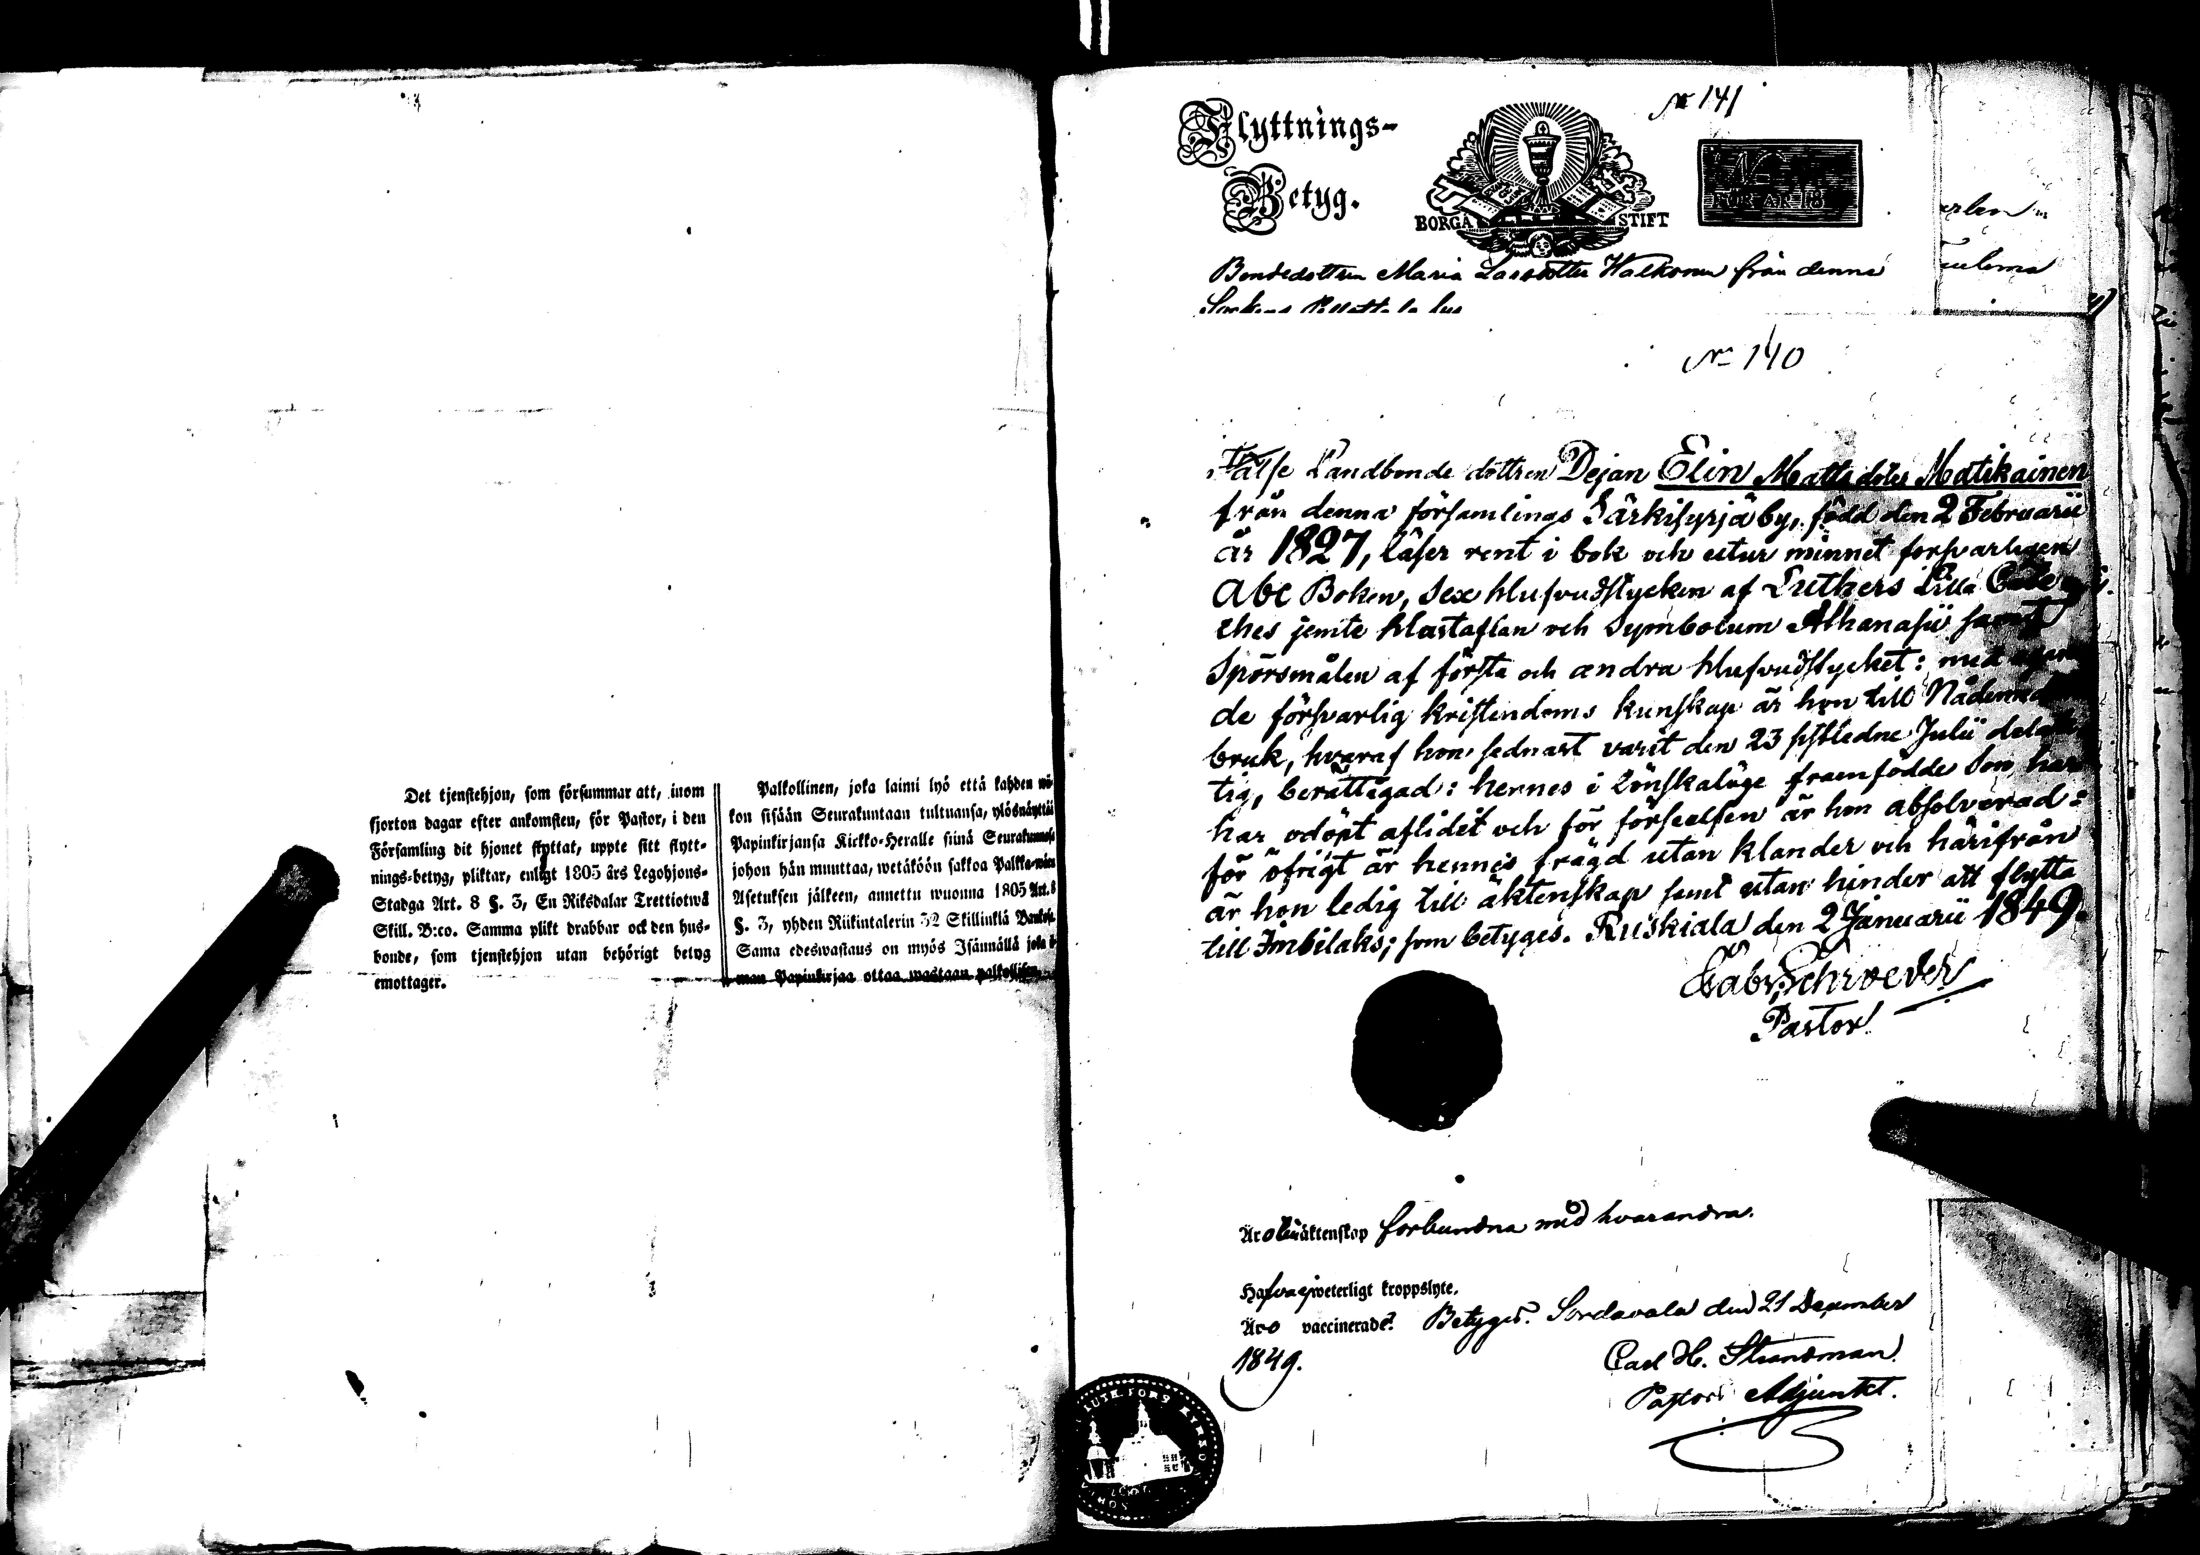 Det tjenstehjon, som försummar att, inom
fjorton dagar efter ankomsten, för Pastor, i den
Församling dit hjonet flyttat, uppte sitt flytt-
nings-betyg, pliktar, enligt 1805 års Legohjons-
Stadga Art. 8 §. 3, En Riksdalar Trettiotwå
Skill. B:co. Samma plikt drabbar ock den hus-
bonde, som tjenstehjon utan behörigt betyg
emottager.
Palkollinen, joka laimi lyö että kahden wii-
kon sisään Seurakuntaan tultuansa, ylösnäyttää
Papinkirjansa Kirkko-Heralle siinä Seurakunnasa
johon hän muuttaa, wetäköön sakkoa Palkka-wäen
Asetuksen jälkeen, annettu wuonna 1805 Art. 8
§. 3, yhden Riikintalerin 32 Skillinkiä Bankosa.
Sama edeswastaus on myös Isännällä joka il-
man Papinkirjaa ottaa wastaan palkollisen.
No 141
Flyttnings-
Betyg.
BORGÅ STIFT
FÖR ÅR 18
Bondedottren Maria Larsdotter Walkonen från denna
Sockens
No 140
Landbonde dottren Dejan Elin Mattsdoter Matikainen
från denna församlings Särkisyrjä by, född den 2 Februarii
år 1827, läser rent i bok och utur minnet försvarligen
Abc Boken, Sex Hufvudstycken af Luthers Lilla Cate
ches jemte Hustaflan och Symbolum Athanasii samt
Spörsmålen af första och andra Hufvudstycket: med egan
de försvarlig Kristendoms kunskap är hon till Nådemed
bruk, hvaraf hon sednast varit den 23 sistledne Julii delak
tig, berättigad: hennes i Lönskaläge framfödde Son har
har odöpt aflidit och för förseelsen är hon absolverad:
för öfrigt är hennes frägd utan klander och härifrån
är hon ledig till äktenskap samt utan hinder att flytta
till Imbilaks; som betyges. Ruskiala den 2 Januarii 1849.
Gabr. Schroeder
Pastor.
Äro i äktenskap förbundna med hvarandra.
Hafva ej weterligt kroppslyte.
Äro vaccinerade. Betyges. Sordavala den 21 December
1849.
Carl H. Strandman.
Pastors Adjunkt.